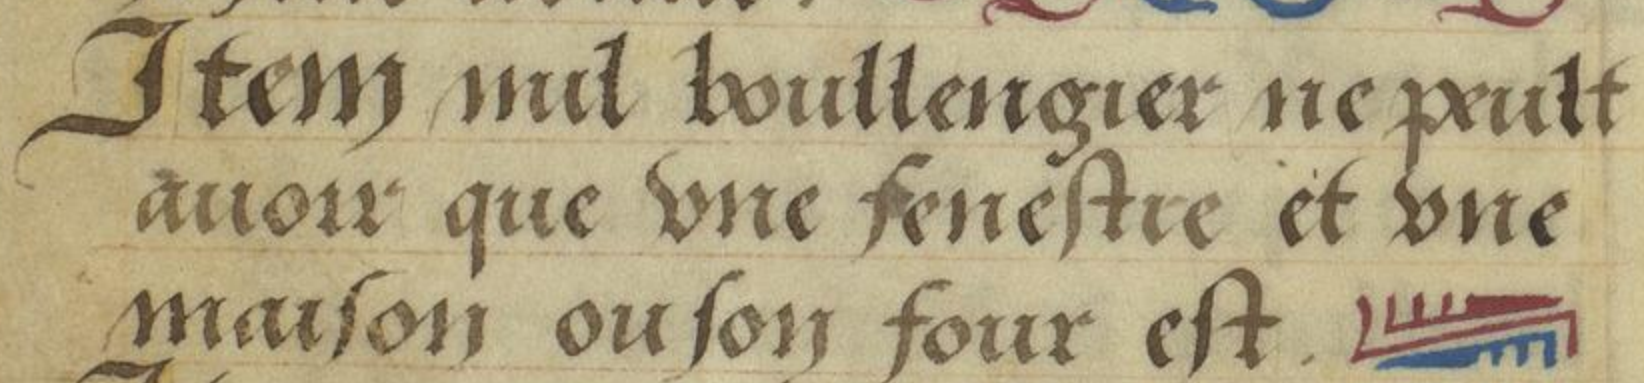 Item nul boullengier ne peult
auoir que vne fenestre et vne
maison ou son four est.